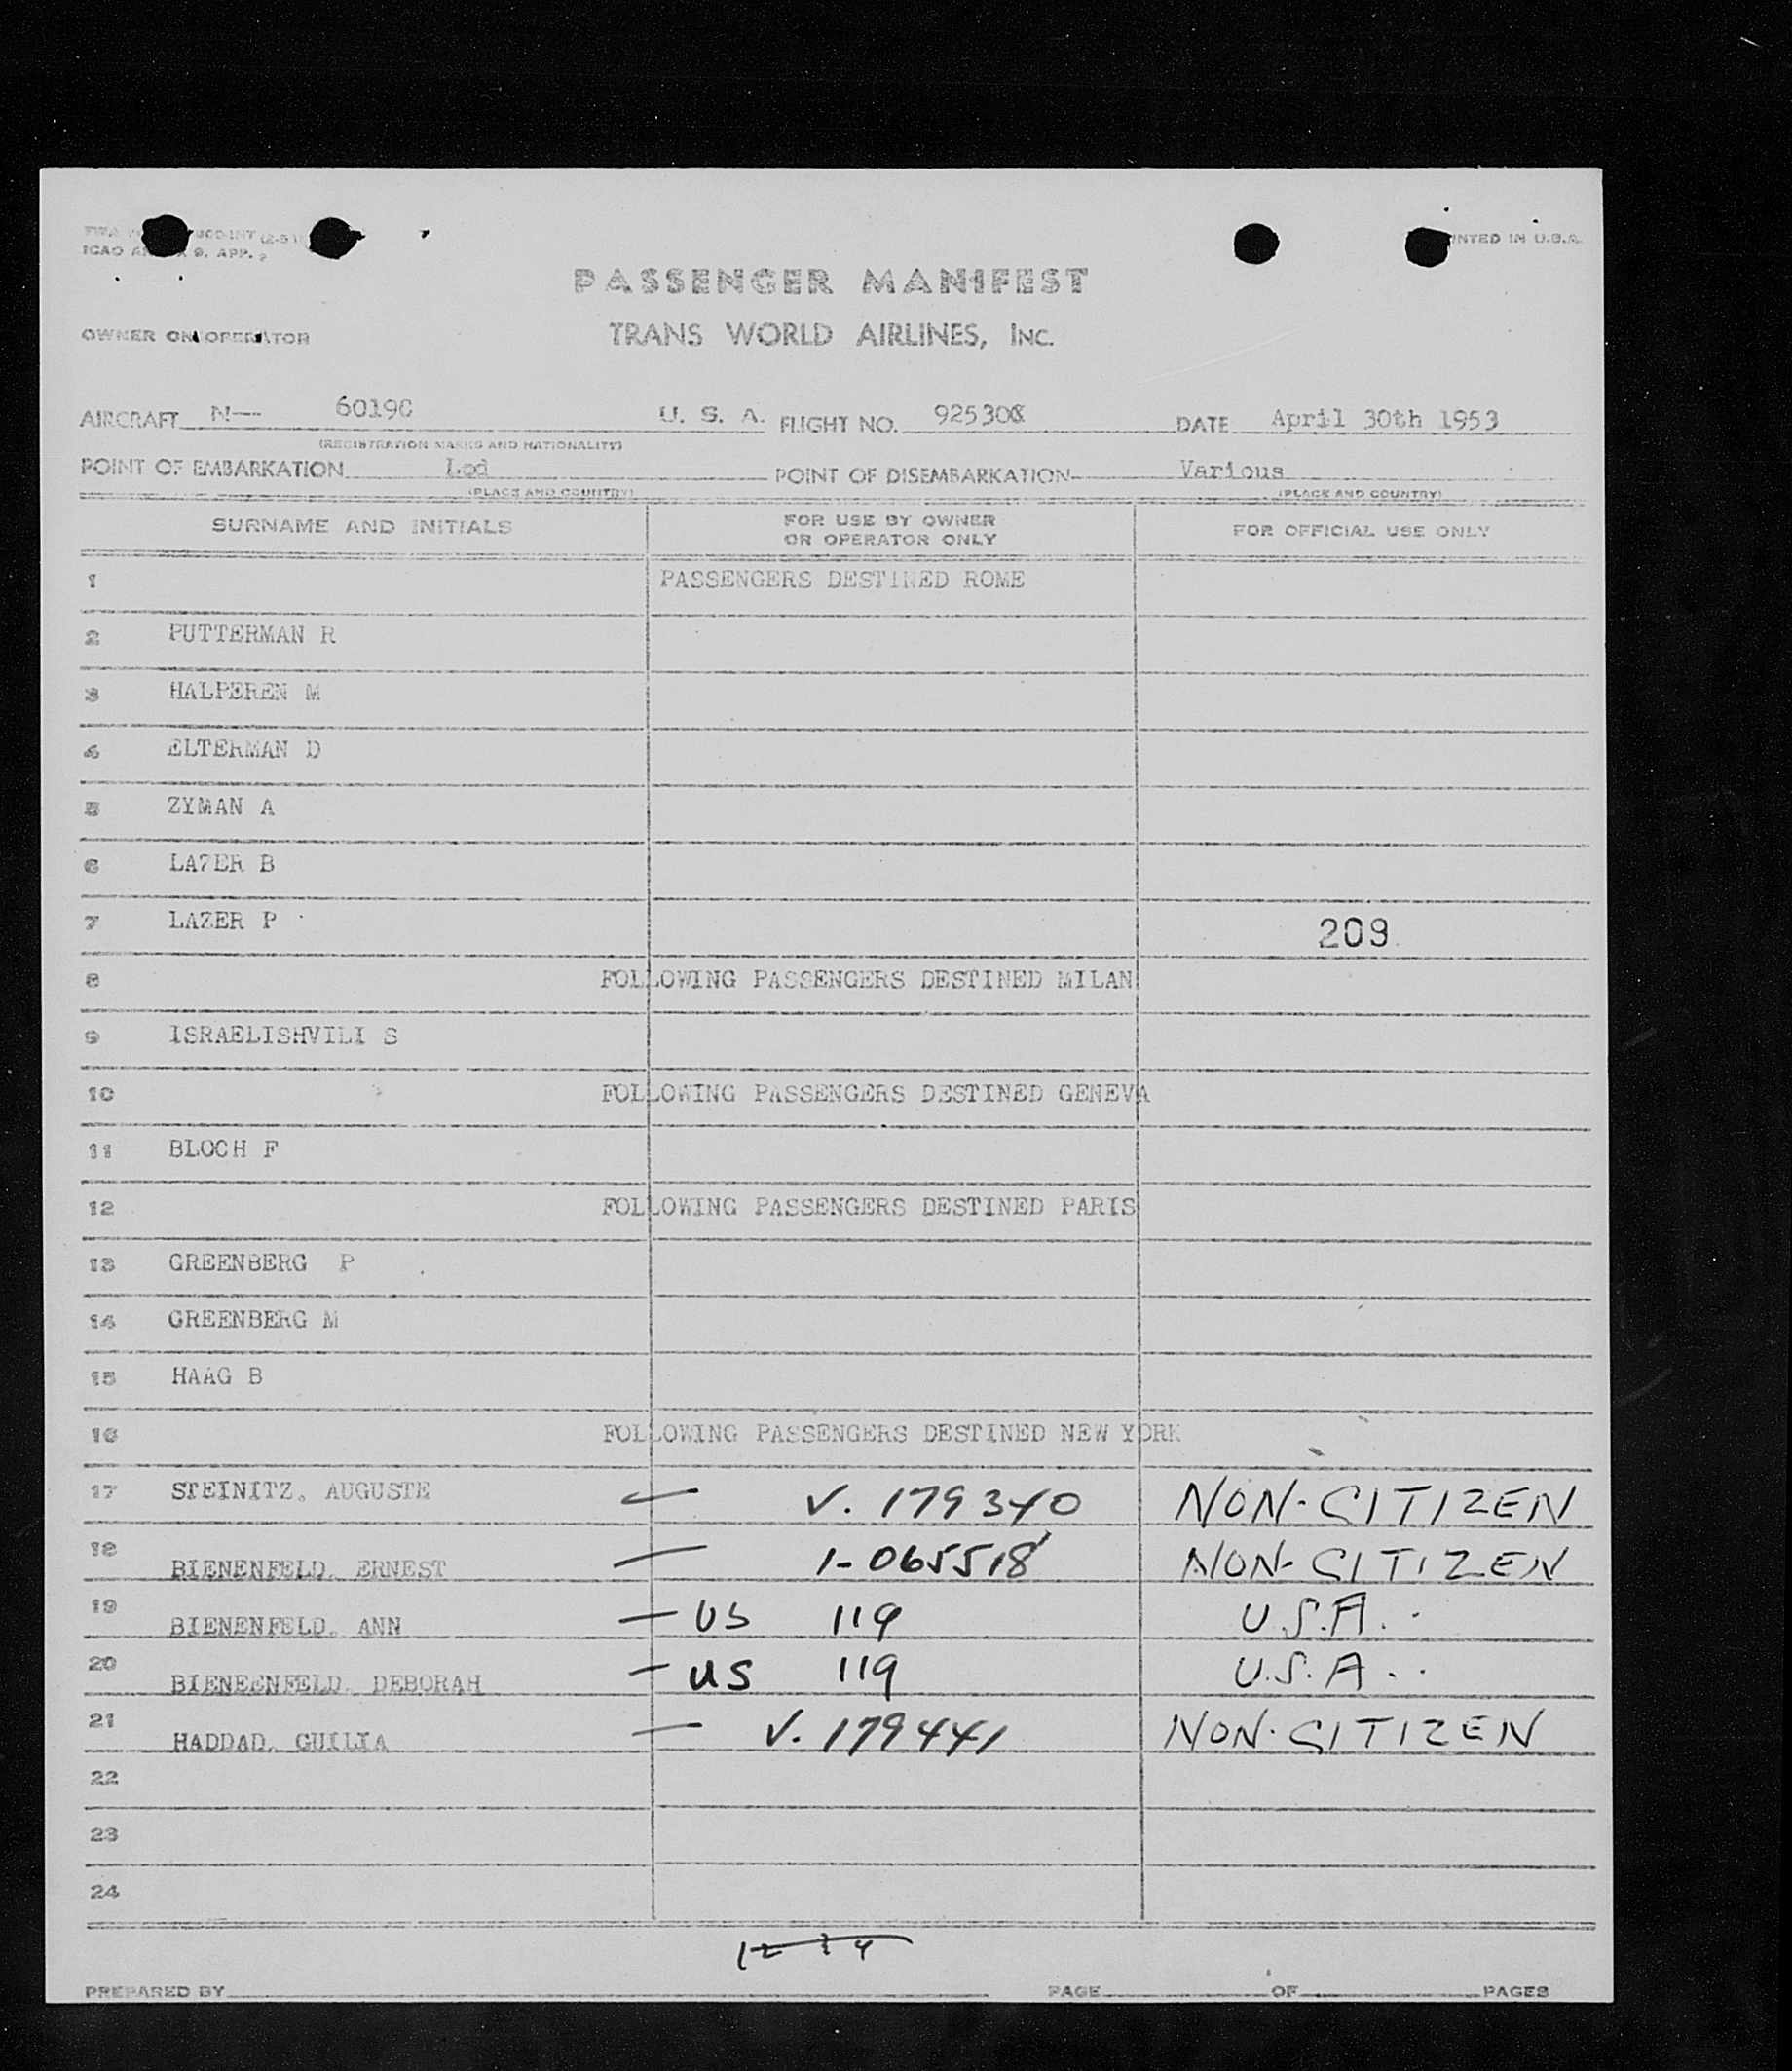 ICAO 9. APP.
PRINTED IN U.S.A.
PASSENGER MANIFEST
OWNER OR OPERATOR TRANS WORLD AIRLINES, INC.
AIRCRAFT N— 6019C U. S. A. FLIGHT NO. 925308 DATE April 30th 1953
(REGISTRATION MARKS AND NATIONALITY)
POINT OF EMBARKATION Lod POINT OF DISEMBARKATION Various
(PLACE AND COUNTRY) (PLACE AND COUNTRY)
SURNAME AND INITIALS FOR USE BY OWNER OR OPERATOR ONLY FOR OFFICIAL USE ONLY
1 PASSENGERS DESTINED ROME
2 PUTTERMAN R
3 HALPEREN M
4 ELTERMAN D
5 ZYMAN A
6 LAZER B
7 LAZER P 209
8 FOLLOWING PASSENGERS DESTINED MILAN
9 ISRAELISHVILI S
10 FOLLOWING PASSENGERS DESTINED GENEVA
11 BLOCH F
12 FOLLOWING PASSENGERS DESTINED PARIS
13 GREENBERG P
14 GREENBERG M
15 HAAG B
16 FOLLOWING PASSENGERS DESTINED NEW YORK
17 STEINITZ, AUGUSTE — V. 179340 NON-CITIZEN
18 BIENENFELD, ERNEST — 1-065518 NON-CITIZEN
19 BIENENFELD, ANN — US 119 U.S.A.
20 BIENEENFELD, DEBORAH — US 119 U.S.A.
21 HADDAD, GUILIA — V. 179441 NON-CITIZEN
22
23
24
PREPARED BY PAGE OF PAGES